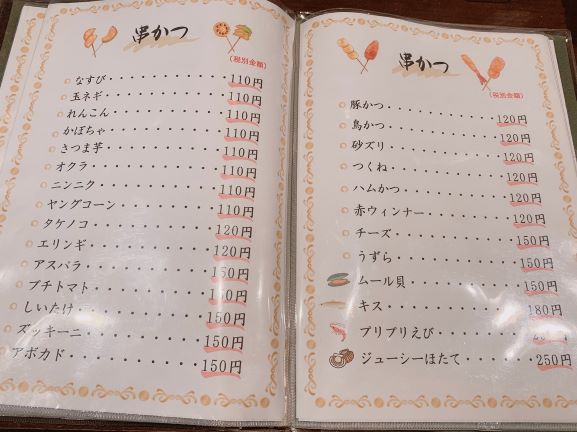 串かつ
(税別金額)
なすび 110円
玉ネギ 110円
れんこん 110円
かぼちゃ 110円
さつま芋 110円
オクラ 110円
ニンニク 110円
ヤングコーン 110円
タケノコ 120円
エリンギ 120円
アスパラ 150円
プチトマト 150円
しいたけ 150円
ズッキーニ 150円
アボカド 150円
串かつ
(税別金額)
豚かつ 120円
鳥かつ 120円
砂ズリ 120円
つくね 120円
ハムかつ 120円
赤ウィンナー 120円
チーズ 150円
うずら 150円
ムール貝 150円
キス 180円
プリプリえび
ジューシーほたて 250円